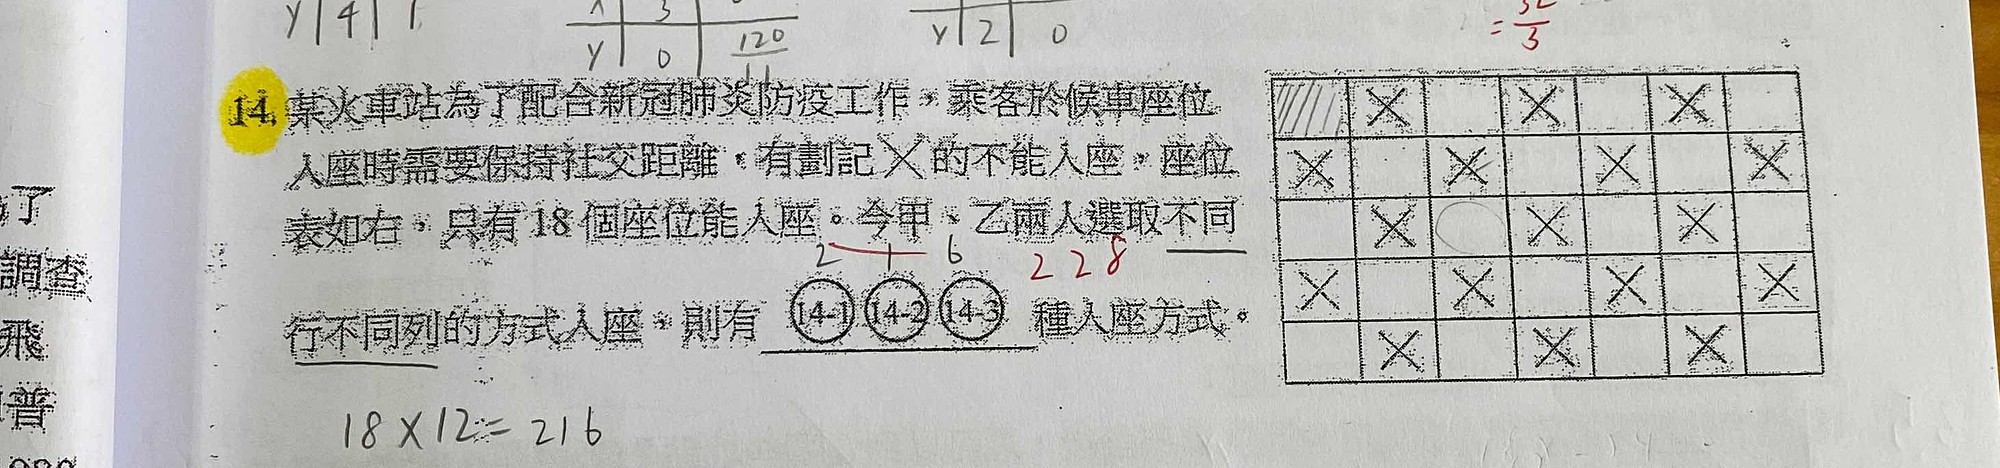 y 4 1
y 0 120
y 2 0
= 3
14. 某火車站為了配合新冠肺炎防疫工作，乘客於候車座位
入座時需要保持社交距離，有劃記╳的不能入座，座位
表如右，只有18個座位能入座。今甲、乙兩人選取不同
2 1 6 228
行不同列的方式入座，則有 14-1 14-2 14-3 種入座方式。
18×12=216
了
調查
飛
普